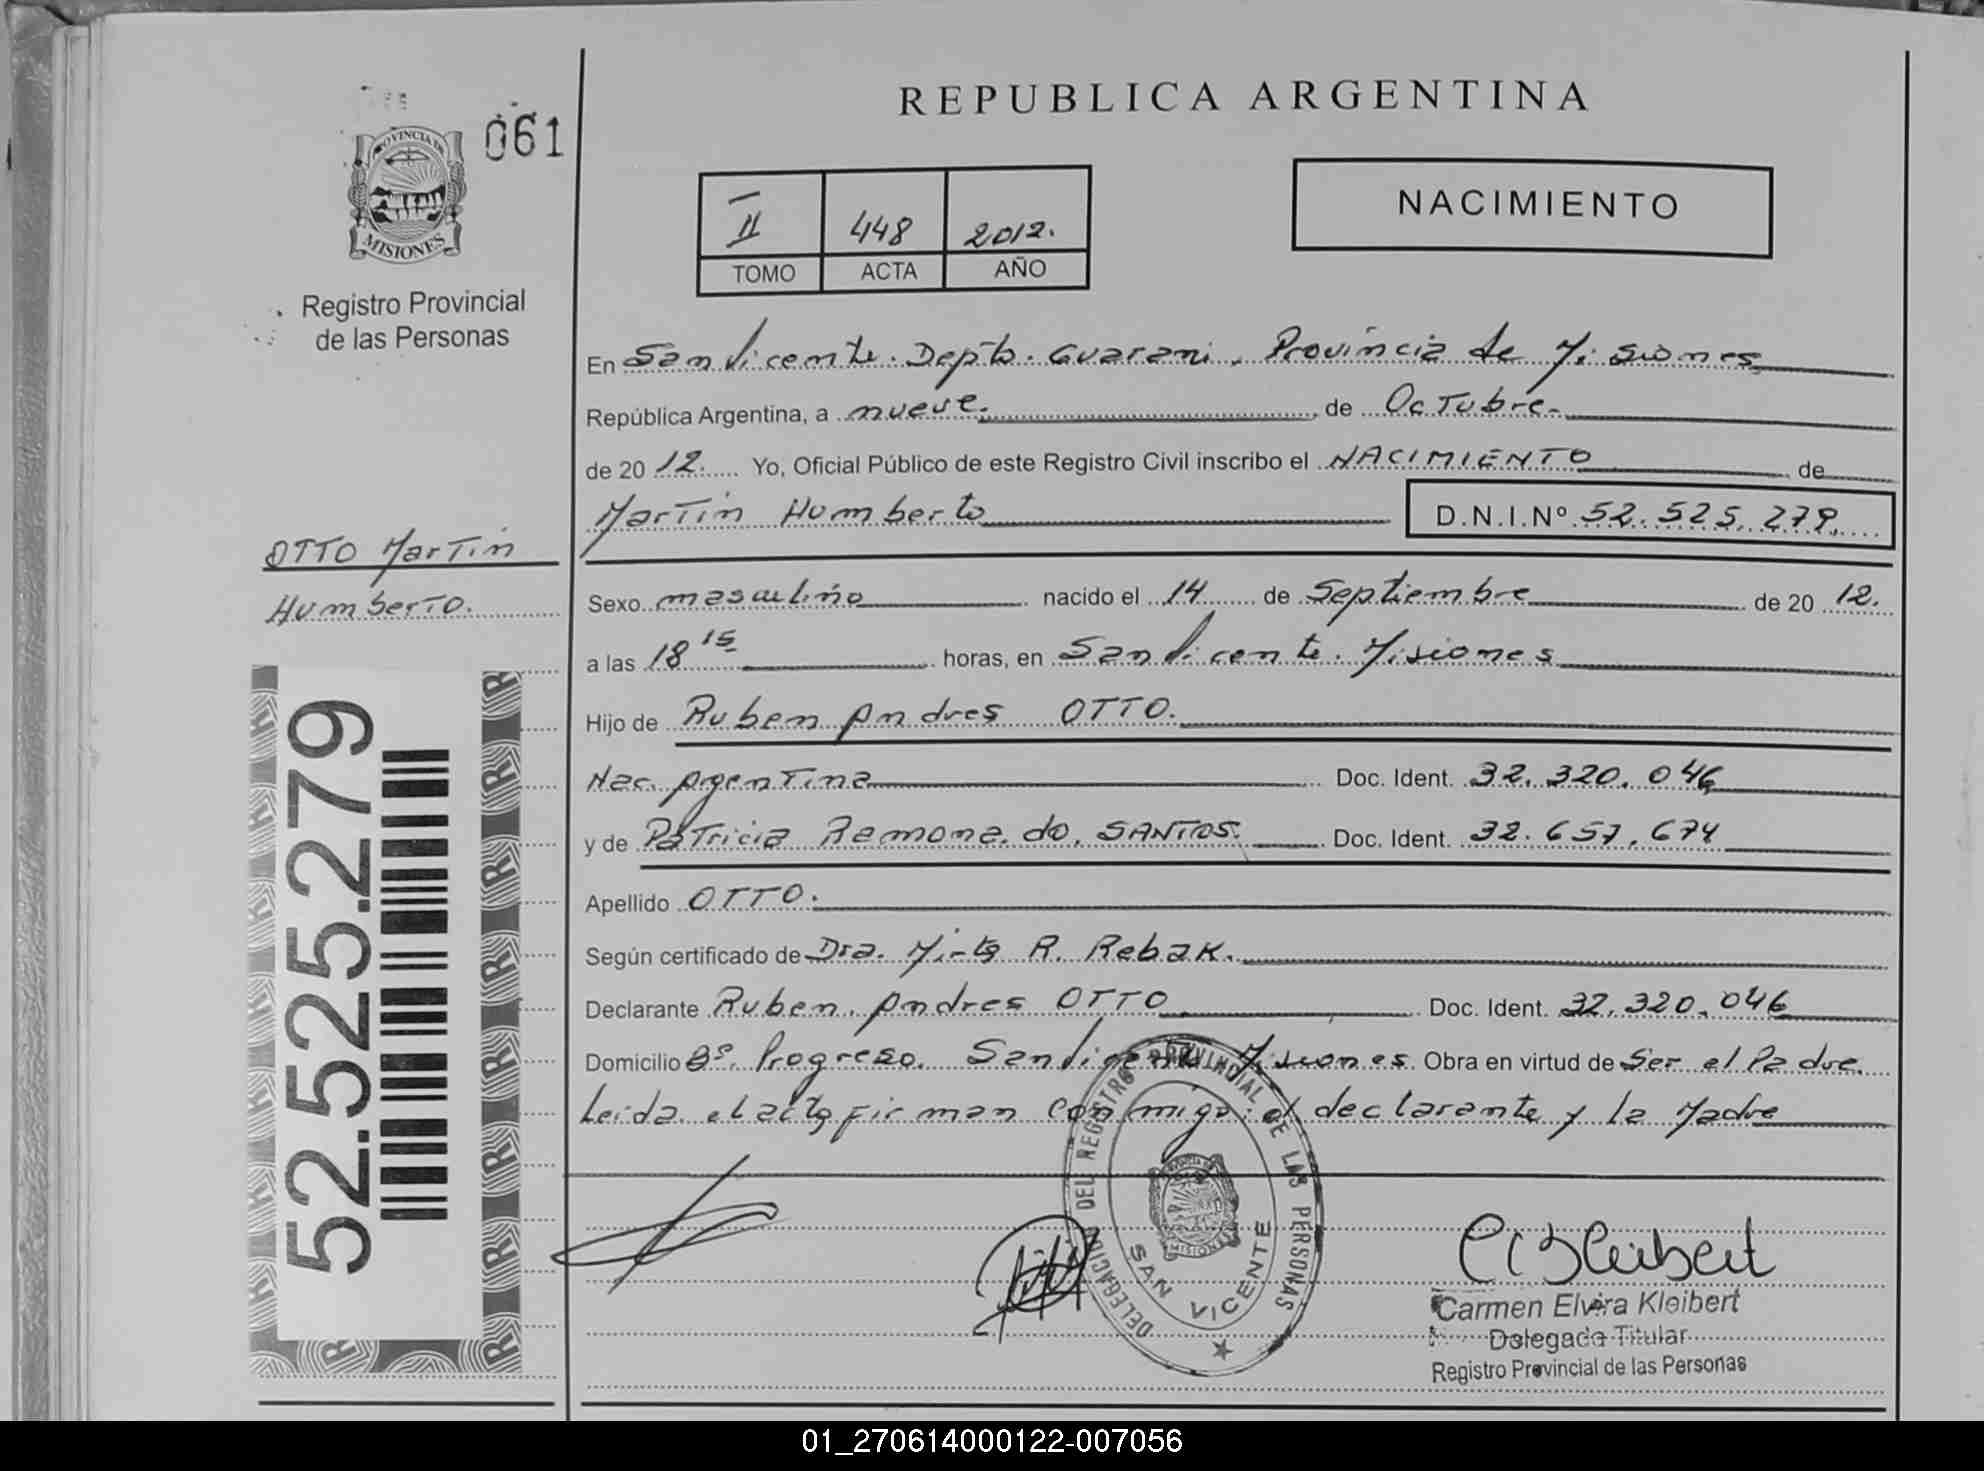 REPUBLICA ARGENTINA
061
PROVINCIA DE
MISIONES
Registro Provincial
de las Personas
II 448 2012.
TOMO ACTA AÑO
NACIMIENTO
En San Vicente. Depto. Guarani, Provincia de Misiones
República Argentina, a nueve. de Octubre.
de 20 12. Yo, Oficial Público de este Registro Civil inscribo el NACIMIENTO de
Martin Humberto D.N.I.Nº 52.525.279.
OTTO Martin
Humberto.
Sexo masculino nacido el 14 de Septiembre de 20 12.
a las 18 15 horas, en San Vicente. Misiones
Hijo de Ruben Andres OTTO.
Nac. Argentina Doc. Ident. 32.320.046
y de Patricia Ramona do SANTOS. Doc. Ident. 32.657.674
Apellido OTTO.
Según certificado de Dra. Mirta R. Rebak.
Declarante Ruben Andres OTTO Doc. Ident. 32.320.046
Domicilio Bº. Progreso. San Vicente Misiones Obra en virtud de Ser el Padre.
Leida el acta firman conmigo: el declarante y la Madre
52.525.279
DELEGACIO DEL REGISTRO PROVINCIAL DE LAS PERSONAS
MISIONES
SAN VICENTE
CEKleibert
Carmen Elvira Kleibert
Delegada Titular
Registro Provincial de las Personas
01_270614000122-007056